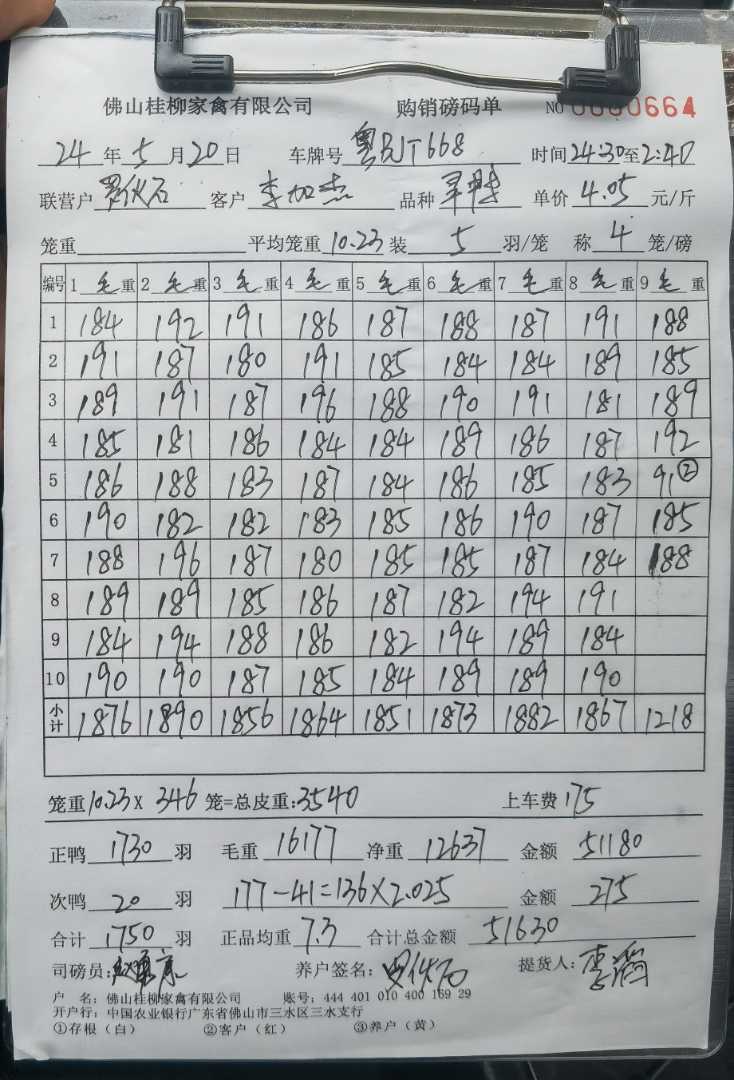 佛山桂柳家禽有限公司 购销磅码单 NO 0000664
24 年 5 月 20 日 车牌号 粤 T668 时间 24:30 至 2:40
联营户 罗伙石 客户 李加杰 品种 单价 4.05 元/斤
笼重 平均笼重 10.23 装 5 羽/笼 称 4 笼/磅
编号 1 毛 重 2 毛 重 3 毛 重 4 毛 重 5 毛 重 6 毛 重 7 毛 重 8 毛 重 9 毛 重
1 184 192 191 186 187 188 187 191 188
2 191 187 180 191 185 184 184 189 185
3 189 191 187 196 188 190 191 181 189
4 185 181 186 184 184 189 186 187 192
5 186 188 183 187 184 186 185 183 91②
6 190 182 182 183 185 186 190 187 185
7 188 196 187 180 185 185 187 184 188
8 189 189 185 186 187 182 194 191
9 184 194 188 186 182 194 189 184
10 190 190 187 185 184 189 189 190
小计 1876 1890 1856 1864 1851 1873 1882 1867 1218
笼重 10.23 X 346 笼=总皮重:3540 上车费 175
正鸭 1730 羽 毛重 16177 净重 12637 金额 51180
次鸭 20 羽 177-41=136×2.025 金额 275
合计 1750 羽 正品均重 7.3 合计总金额 51630
司磅员: 养户签名: 罗伙石 提货人:
户 名: 佛山桂柳家禽有限公司 账号: 444 401 010 400 169 29
开户行: 中国农业银行广东省佛山市三水区三水支行
①存根（白） ②客户（红） ③养户（黄）